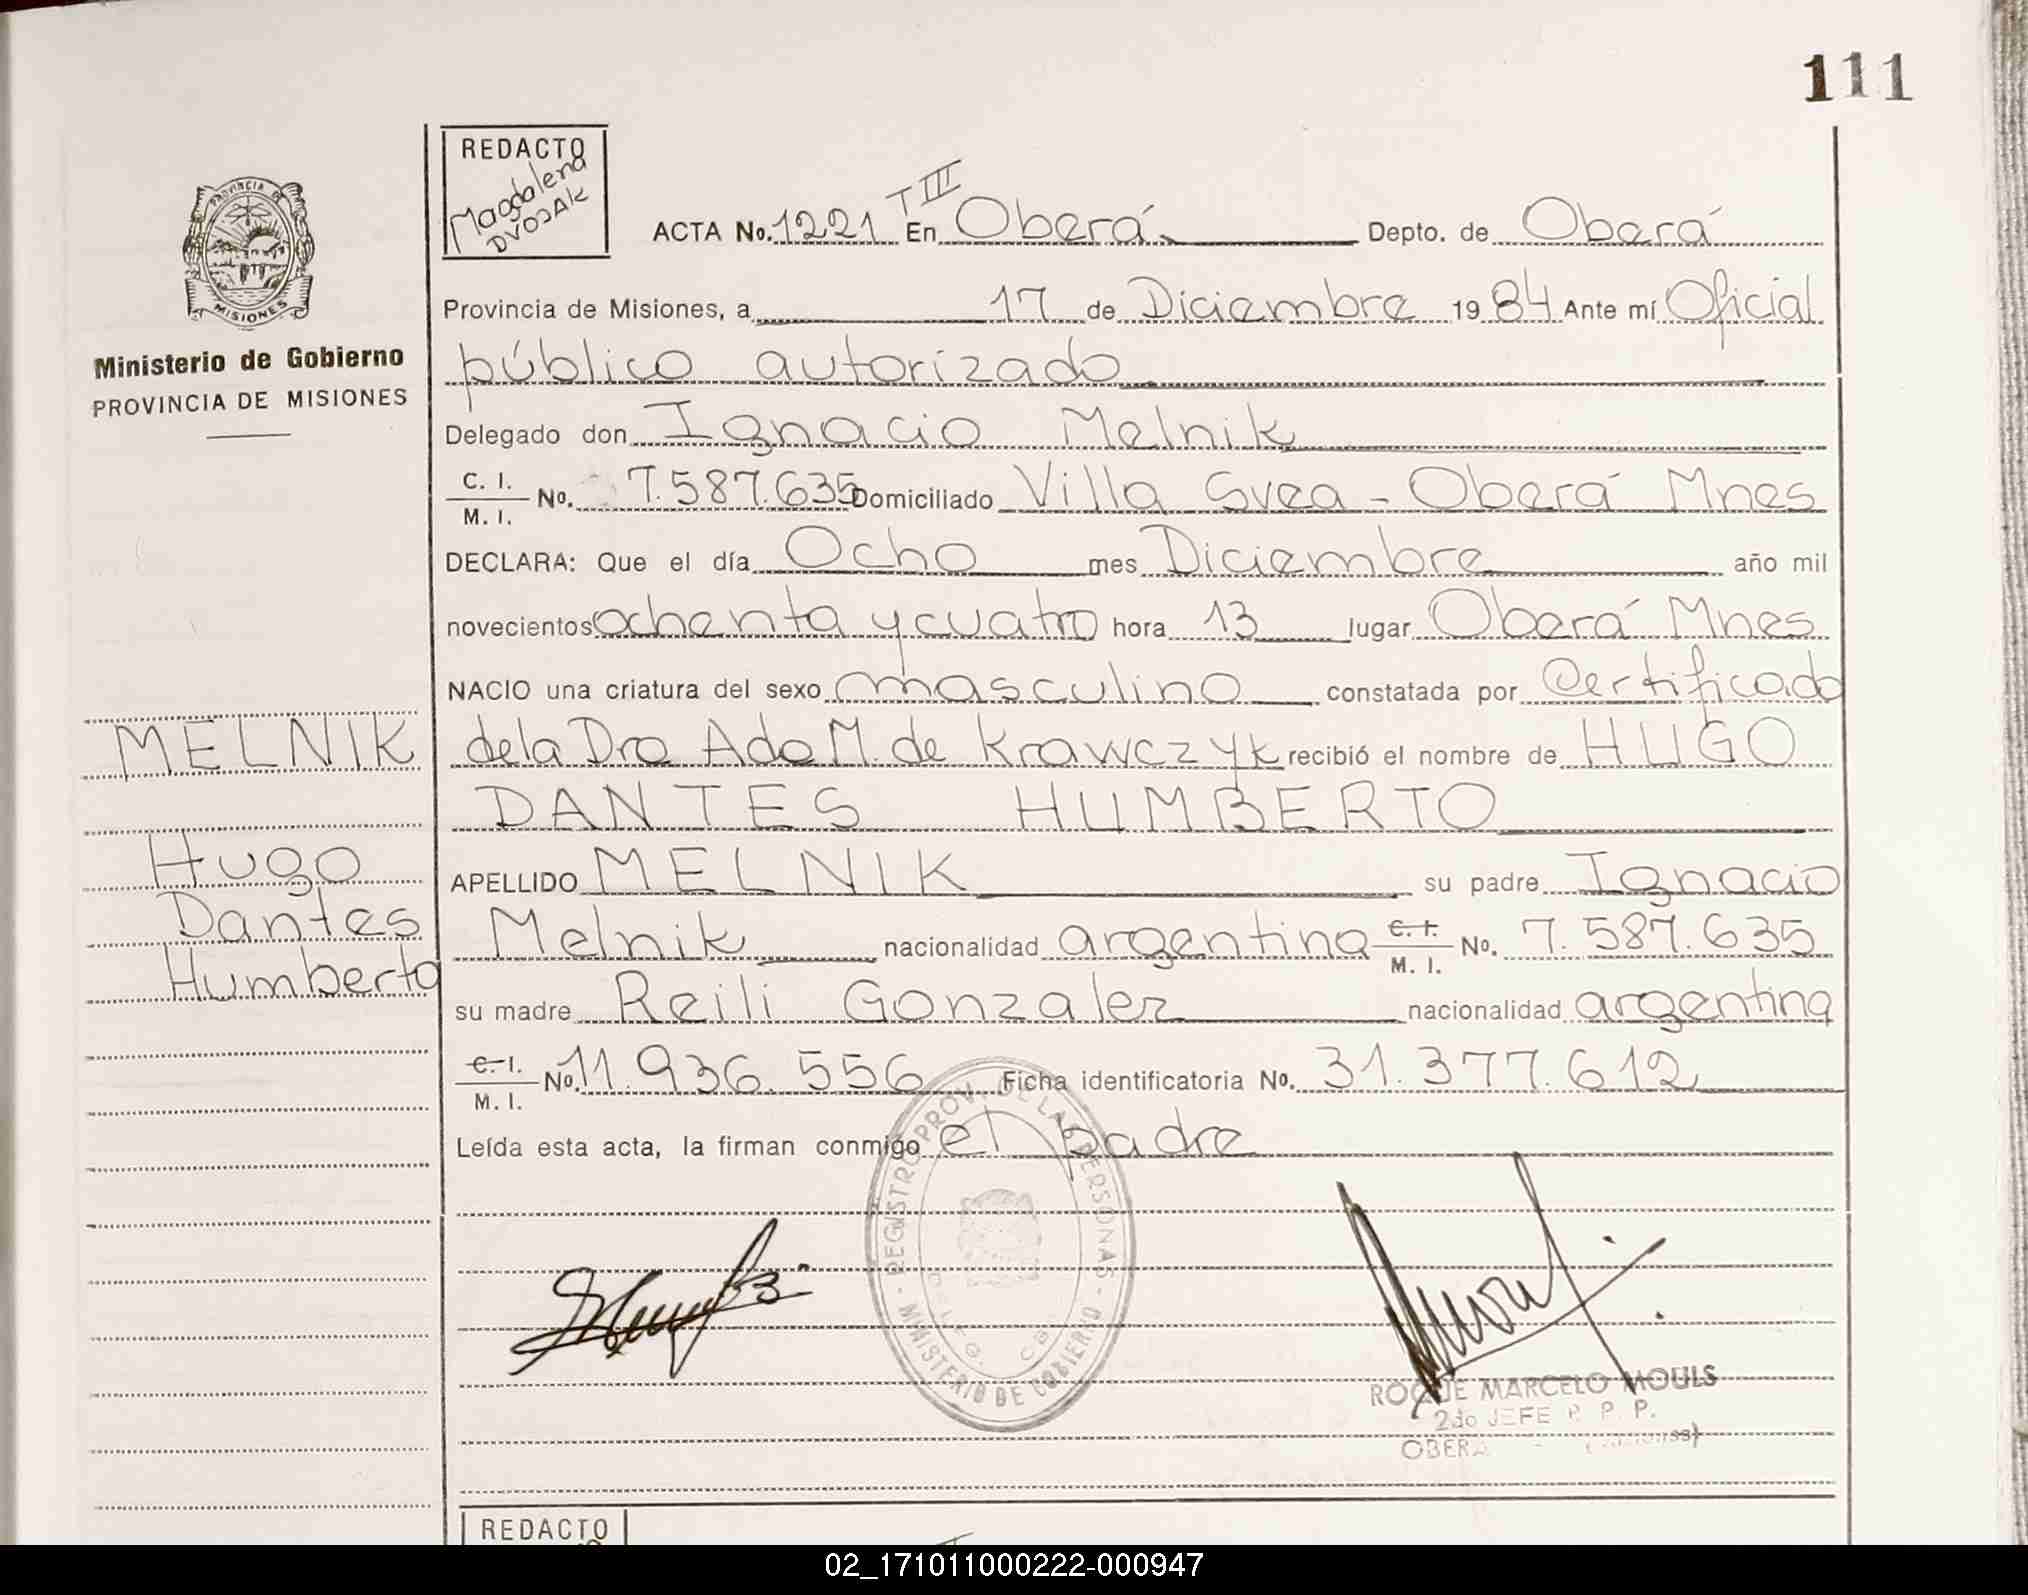 111
REDACTO
Magdalena
DVOJAK
PROVINCIA DE
MISIONES
Ministerio de Gobierno
PROVINCIA DE MISIONES
T III
ACTA No. 1221 En Oberá Depto. de Oberá
Provincia de Misiones, a 17 de Diciembre 1984 Ante mí Oficial
público autorizado
Delegado don Ignacio Melnik
C. I.
M. I.
No. 7.587.635 Domiciliado Villa Svea - Oberá Mnes
DECLARA: Que el día Ocho mes Diciembre año mil
novecientos ochenta y cuatro hora 13 lugar Oberá Mnes
NACIO una criatura del sexo masculino constatada por Certificado
de la Dra Ada M. de Krawczyk recibió el nombre de HUGO
DANTES HUMBERTO
APELLIDO MELNIK su padre Ignacio
Melnik nacionalidad argentina C. I. M. I. No. 7.587.635
su madre Reili Gonzalez nacionalidad argentina
C. I.
M. I.
No. 11.936.556 Ficha identificatoria No. 31.377.612
Leída esta acta, la firman conmigo el padre
MELNIK
Hugo
Dantes
Humberto
REGISTRO PROV. DE LAS PERSONAS
MINISTERIO DE GOBIERNO
ROQUE MARCELO MOULS
2do JEFE R. P. P.
OBERA
REDACTO
02_171011000222-000947